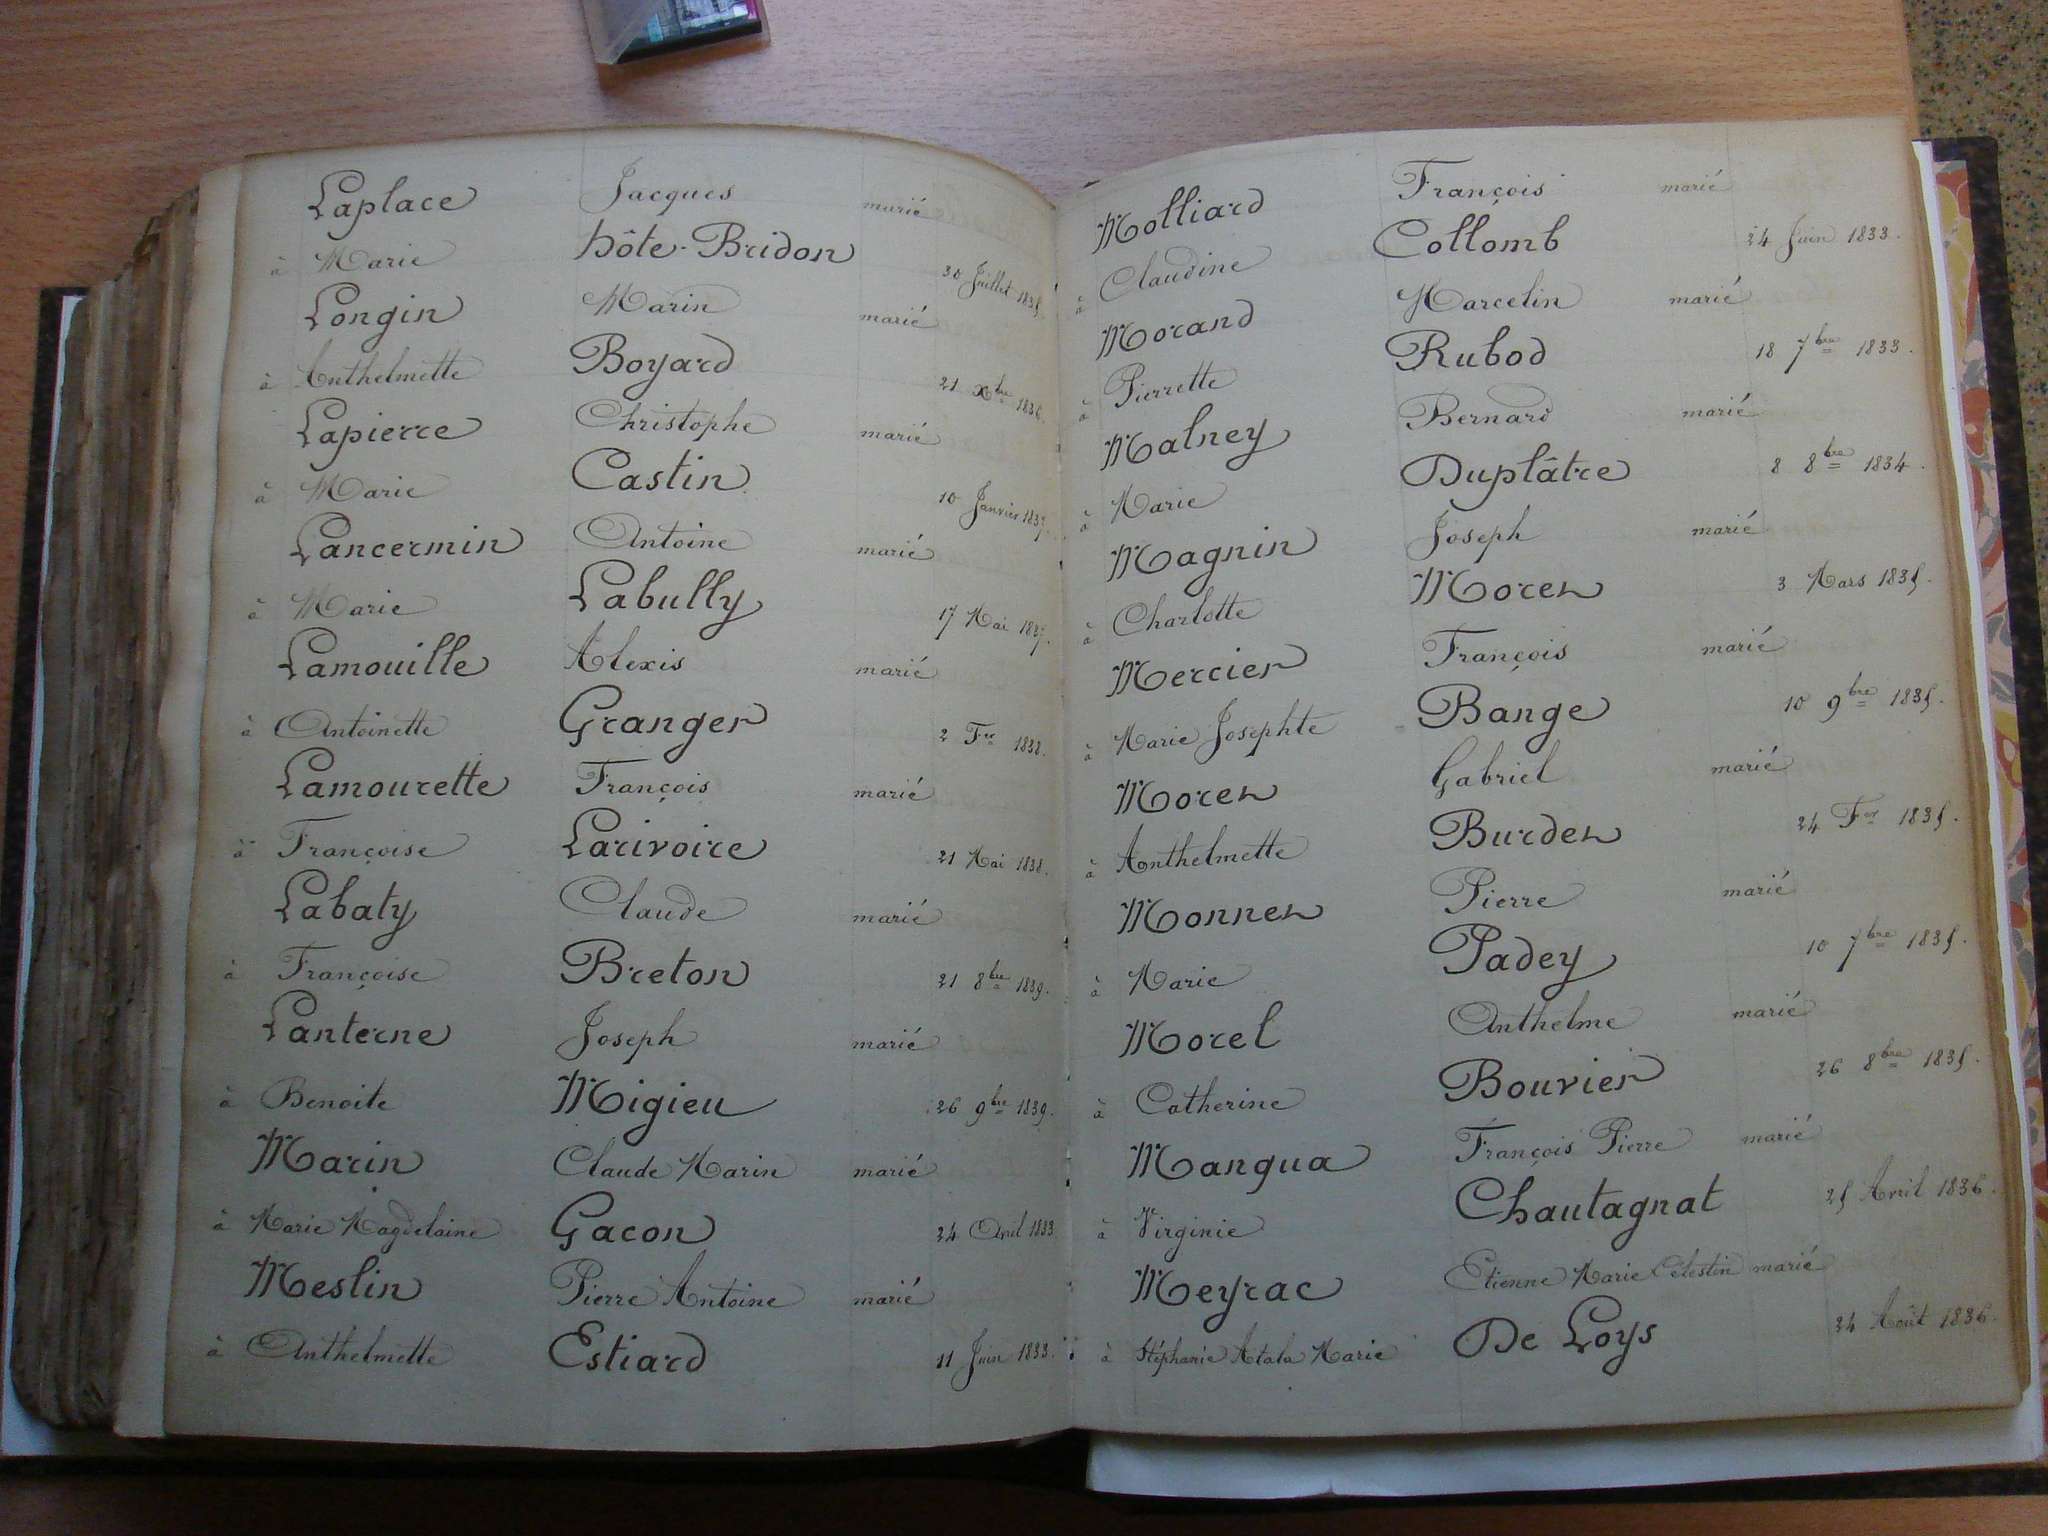 Laplace Jacques marié
à Marie hôte-Bridon 30 Juillet 1835
Longin Marin marié
à Anthelmette Boyard 21 Xbre 1836
Lapierre Christophe marié
à Marie Castin 10 Janvier 1837
Lancermin Antoine marié
à Marie Labully 17 Mai 1837.
Lamouille Alexis marié
à Antoinette Granger 2 Fer 1838.
Lamourette François marié
à Françoise Larivoire 21 Mai 1838.
Labaty Claude marié
à Françoise Breton 21 8bre 1839.
Lanterne Joseph marié
à Benoite Migieu 26 9bre 1839.
Marin Claude Marin marié
à Marie Magdelaine Gacon 24 Avril 1833
Meslin Pierre Antoine marié
à Anthelmette Estiard 11 Juin 1833.
Molliard François marié
à Claudine Collomb 24 Juin 1833.
Morand Marcelin marié
à Pierrette Rubod 18 7bre 1833.
Malney Bernard marié
à Marie Duplâtre 8 8bre 1834.
Magnin Joseph marié
à Charlotte Moret 3 Mars 1835.
Mercier François marié
à Marie Josephte Bange 10 9bre 1835.
Moret Gabriel marié
à Anthelmette Burdet 24 Fer 1835.
Monnet Pierre marié
à Marie Padey 10 7bre 1835.
Morel Anthelme marié
à Catherine Bouvier 26 8bre 1835.
Mangua François Pierre marié
à Virginie Chautagnat 25 Avril 1836.
Meyrac Etienne Marie Célestin marié
à Stéphanie Atala Marie De Loys 24 Août 1836.